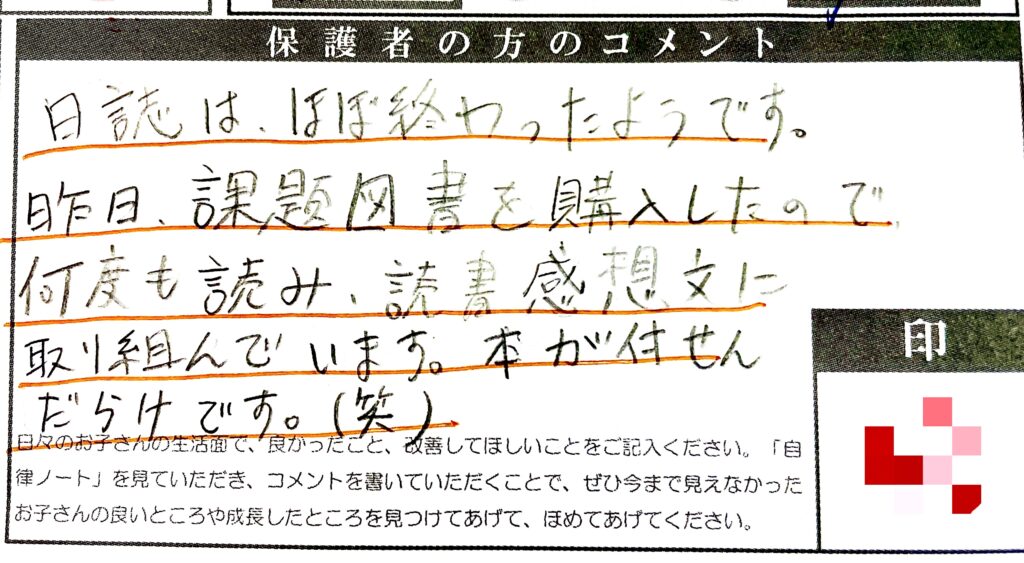 保護者の方のコメント
日誌は、ほぼ終わったようです。
昨日、課題図書を購入したので
何度も読み、読書感想文に
取り組んでいます。本が付せん
だらけです。(笑)
印
日々のお子さんの生活面で、良かったこと、改善してほしいことをご記入ください。「自
律ノート」を見ていただき、コメントを書いていただくことで、ぜひ今まで見えなかった
お子さんの良いところや成長したところを見つけてあげて、ほめてあげてください。